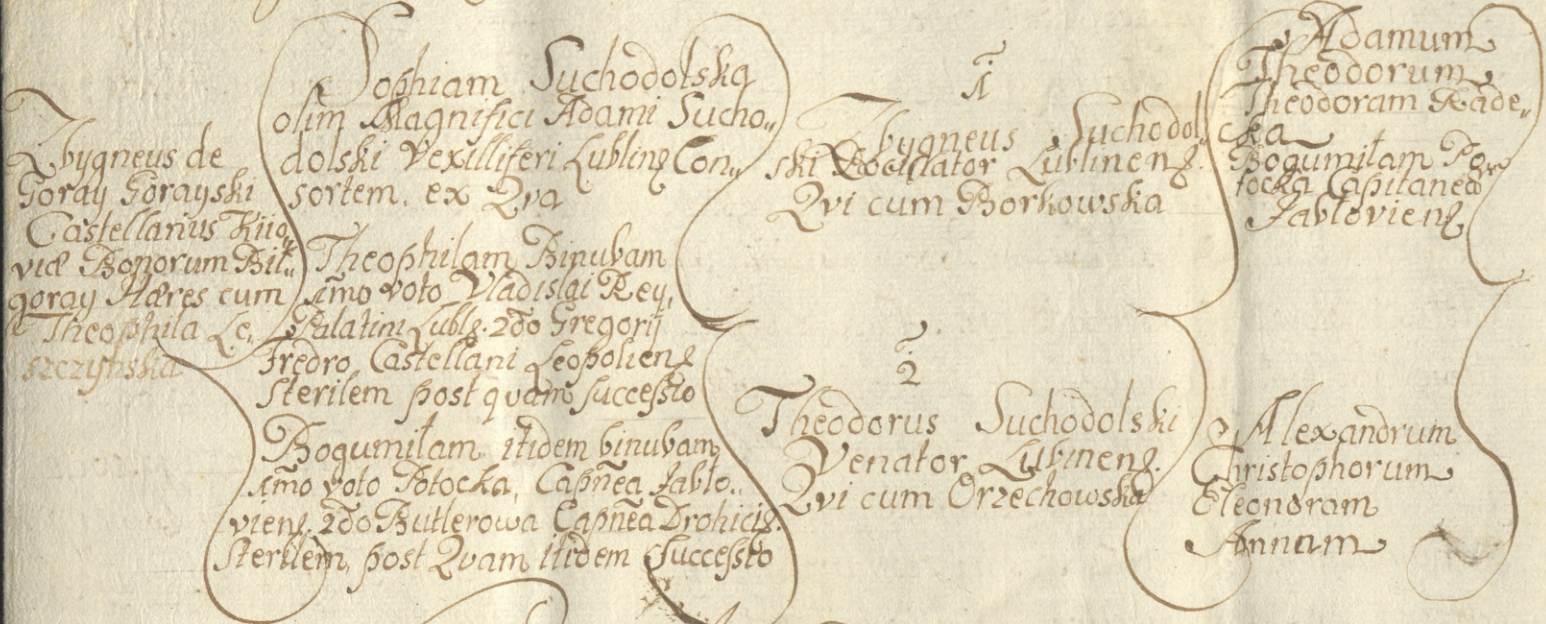 Zbygneus de
Goray Gorayski
Castellanus Kiio„
viæ Bonorum Bił„
goray Hæres cum
Theophila Le„
szczyńska
Sophiam Suchodolską
olim Magnifici Adami Sucho„
dolski Vexilliferi Lublinē Con„
sortem, ex Qva
Theophilam Binubam
1mo voto Vladislai Rey,
Palatini Lublē. 2do Gregorij
Fredro Castellani Leopolienē
sterilem post qvam successio
Bogumiłam itidem binubam
1mo voto Potocka, Capñea Jabło„
vienē. 2do Butlerowa Capñea Drohicē.
sterilem, post Qvam itidem successio
1
Zbygneus Suchodol„
ski Lublinenē.
Qvi cum Borkowska
2
Theodorus Suchodolski
Venator Lublinenē.
Qvi cum Orzechowska
Adamum
Theodorum
Theodoram Rade„
cka
Bogumiłam Po„
tocka Capitanea
Jabłovienē
Alexandrum
Christophorum
Eleonoram
Annam